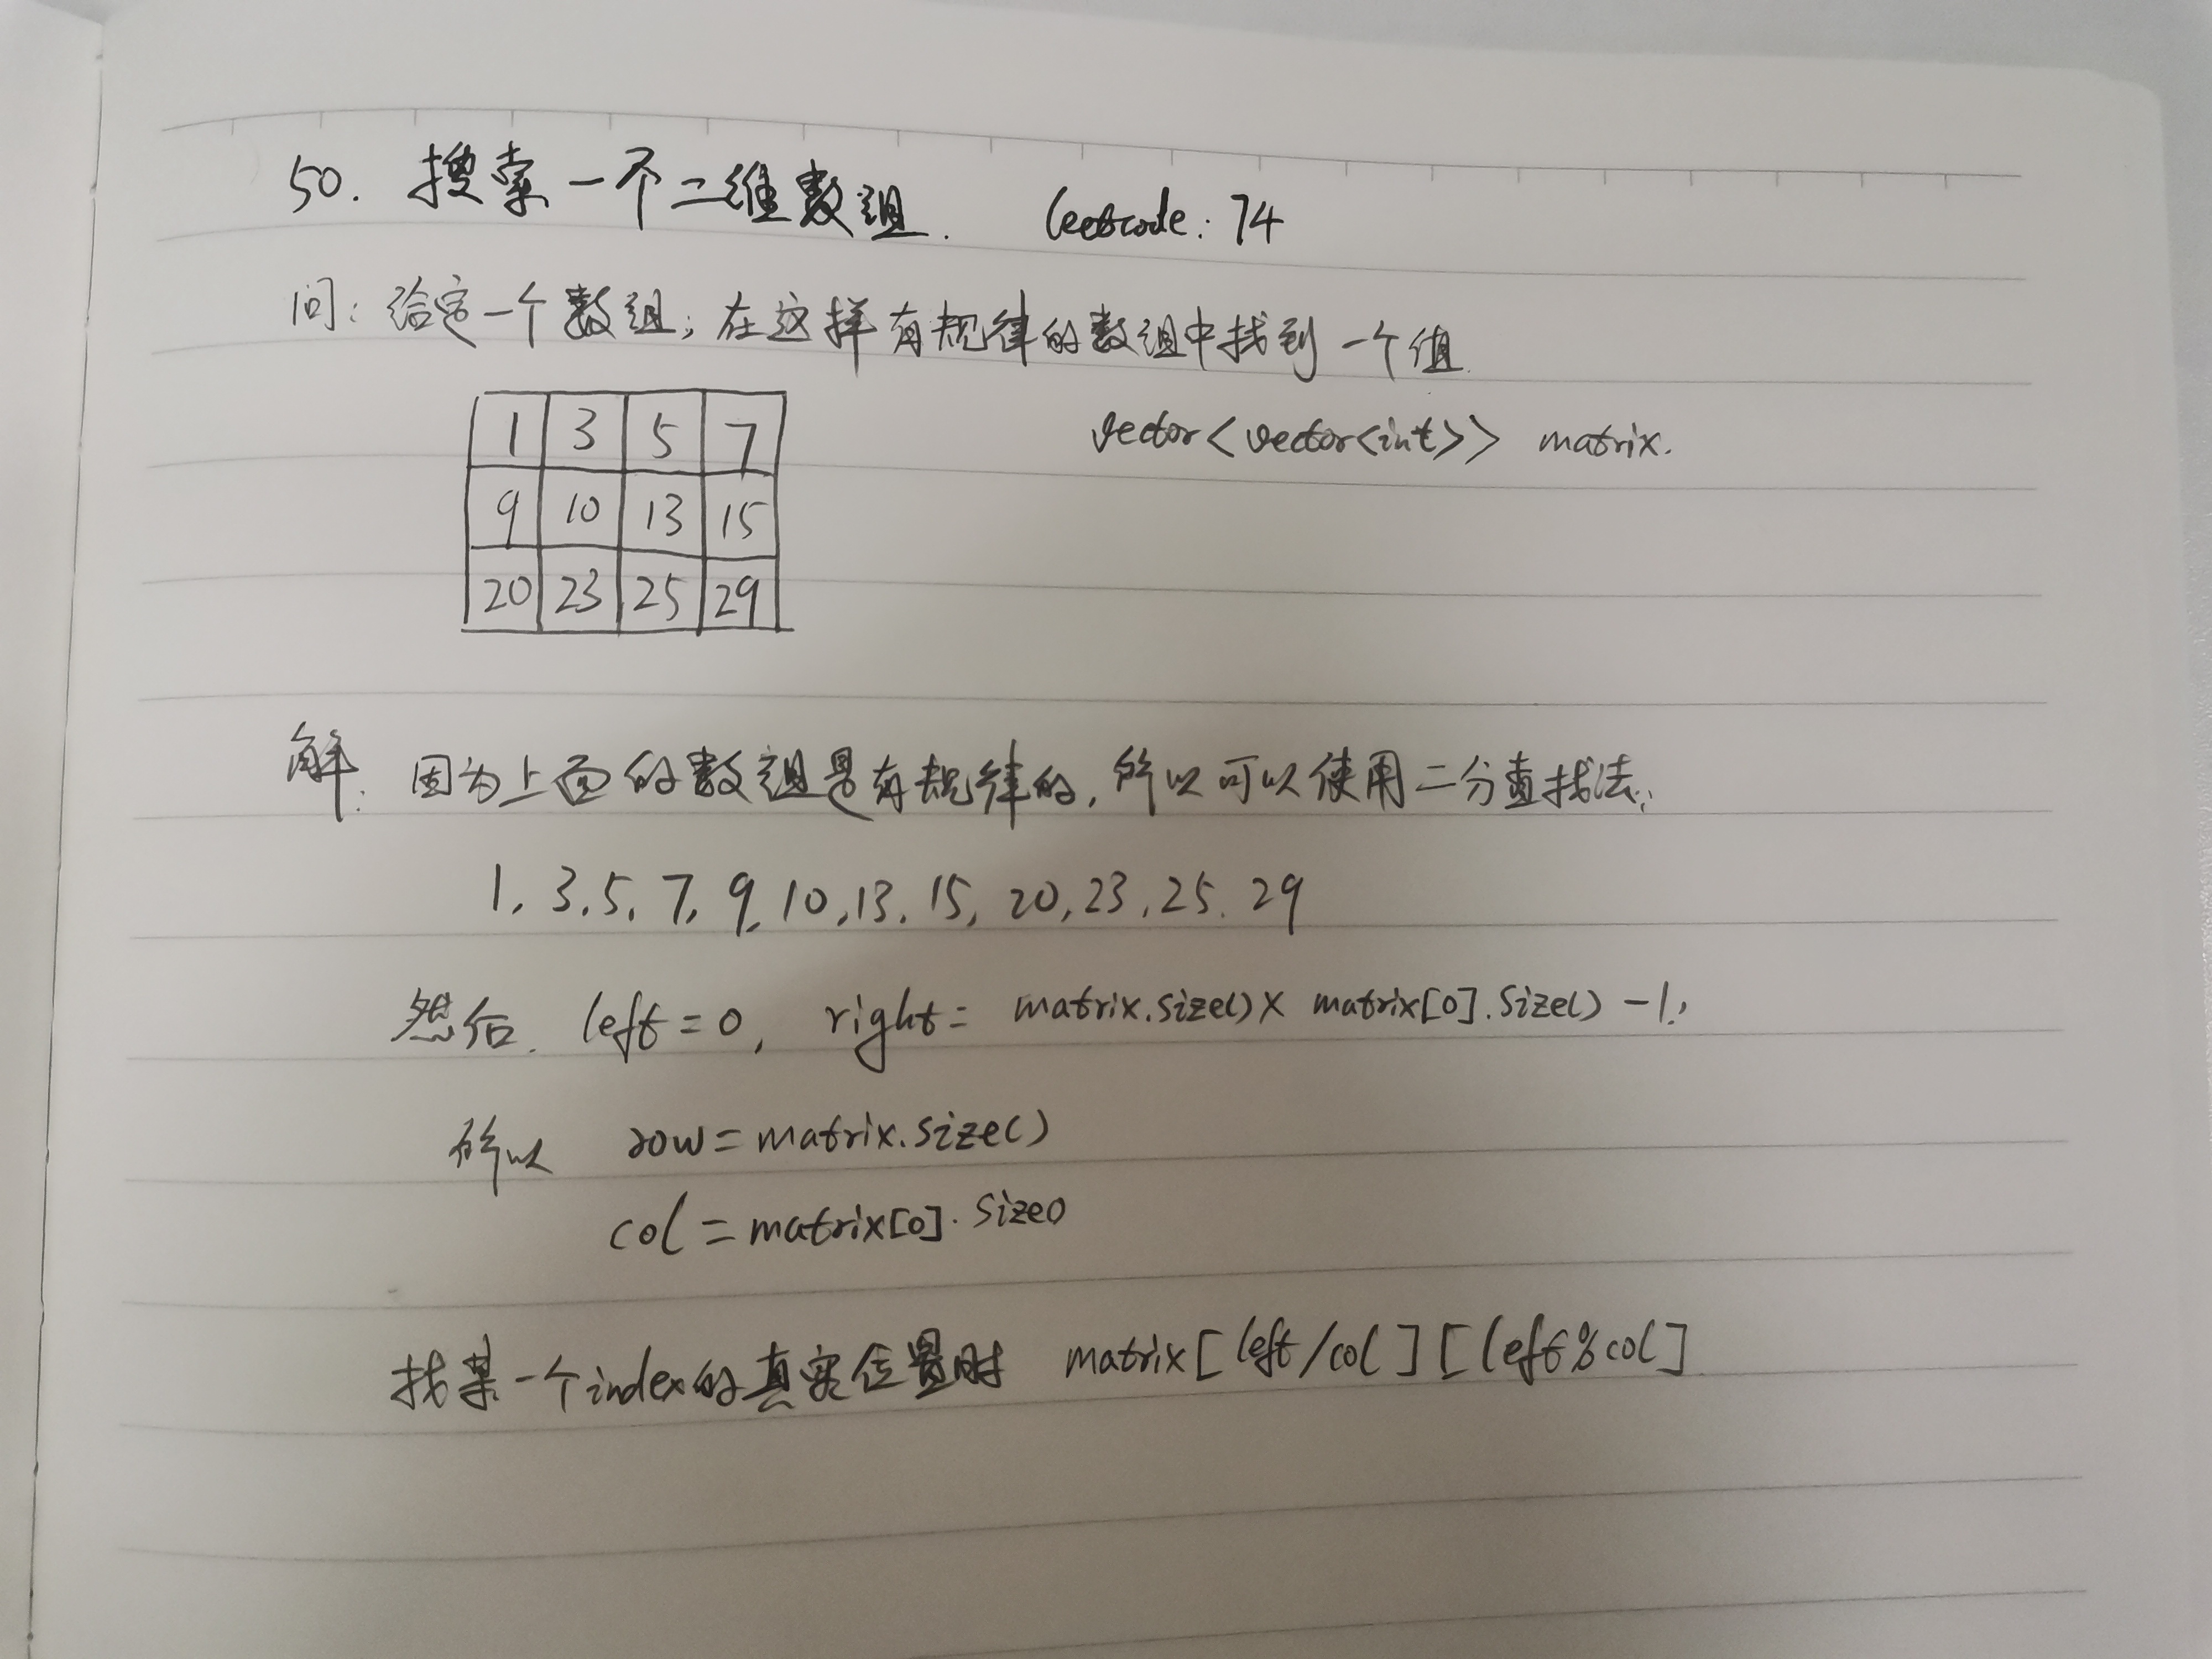 50. 搜索一个二维数组. leetcode: 74
问: 给定一个数组; 在这样有规律的数组中找到一个值.
1 3 5 7
vector<vector<int>> matrix.
9 10 13 15
20 23 25 29
解. 因为上面的数组是有规律的, 所以可以使用二分查找法;
1, 3, 5, 7, 9, 10, 13, 15, 20, 23, 25, 29
然后. left = 0, right = matrix.size() × matrix[0].size() - 1;
所以 row = matrix.size()
col = matrix[0].size()
找某一个index的真实位置时 matrix[left/col][left%col]